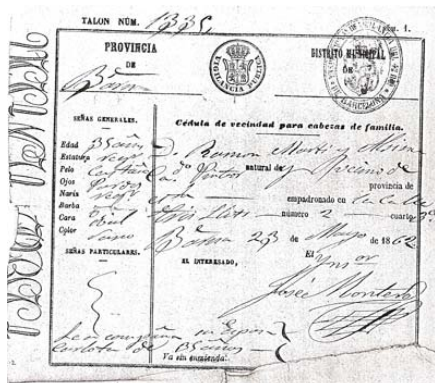 TALON NÚM. 1335.
Núm. 1.
PROVINCIA
DE
Bᵃna
VIGILANCIA PUBLICA
DISTRITO MUNICIPAL
DE
BARCELONA
SEÑAS GENERALES.
Edad 35 años
Estatura regr
Pelo castaño
Ojos pardos
Nariz regr
Barba
Cara oval
Color sano
SEÑAS PARTICULARES.
Cédula de vecindad para cabezas de familia.
D. Ramon Martí y
natural de y Vecino de
esta provincia de
empadronado en la calle
número 2 cuarto
Bᵃna 23 de Mayo de 1862
EL INTERESADO,
El Ynsor
José Montero
Le acompaña su Esposa
Carlota de 35 años
Va sin enmienda.